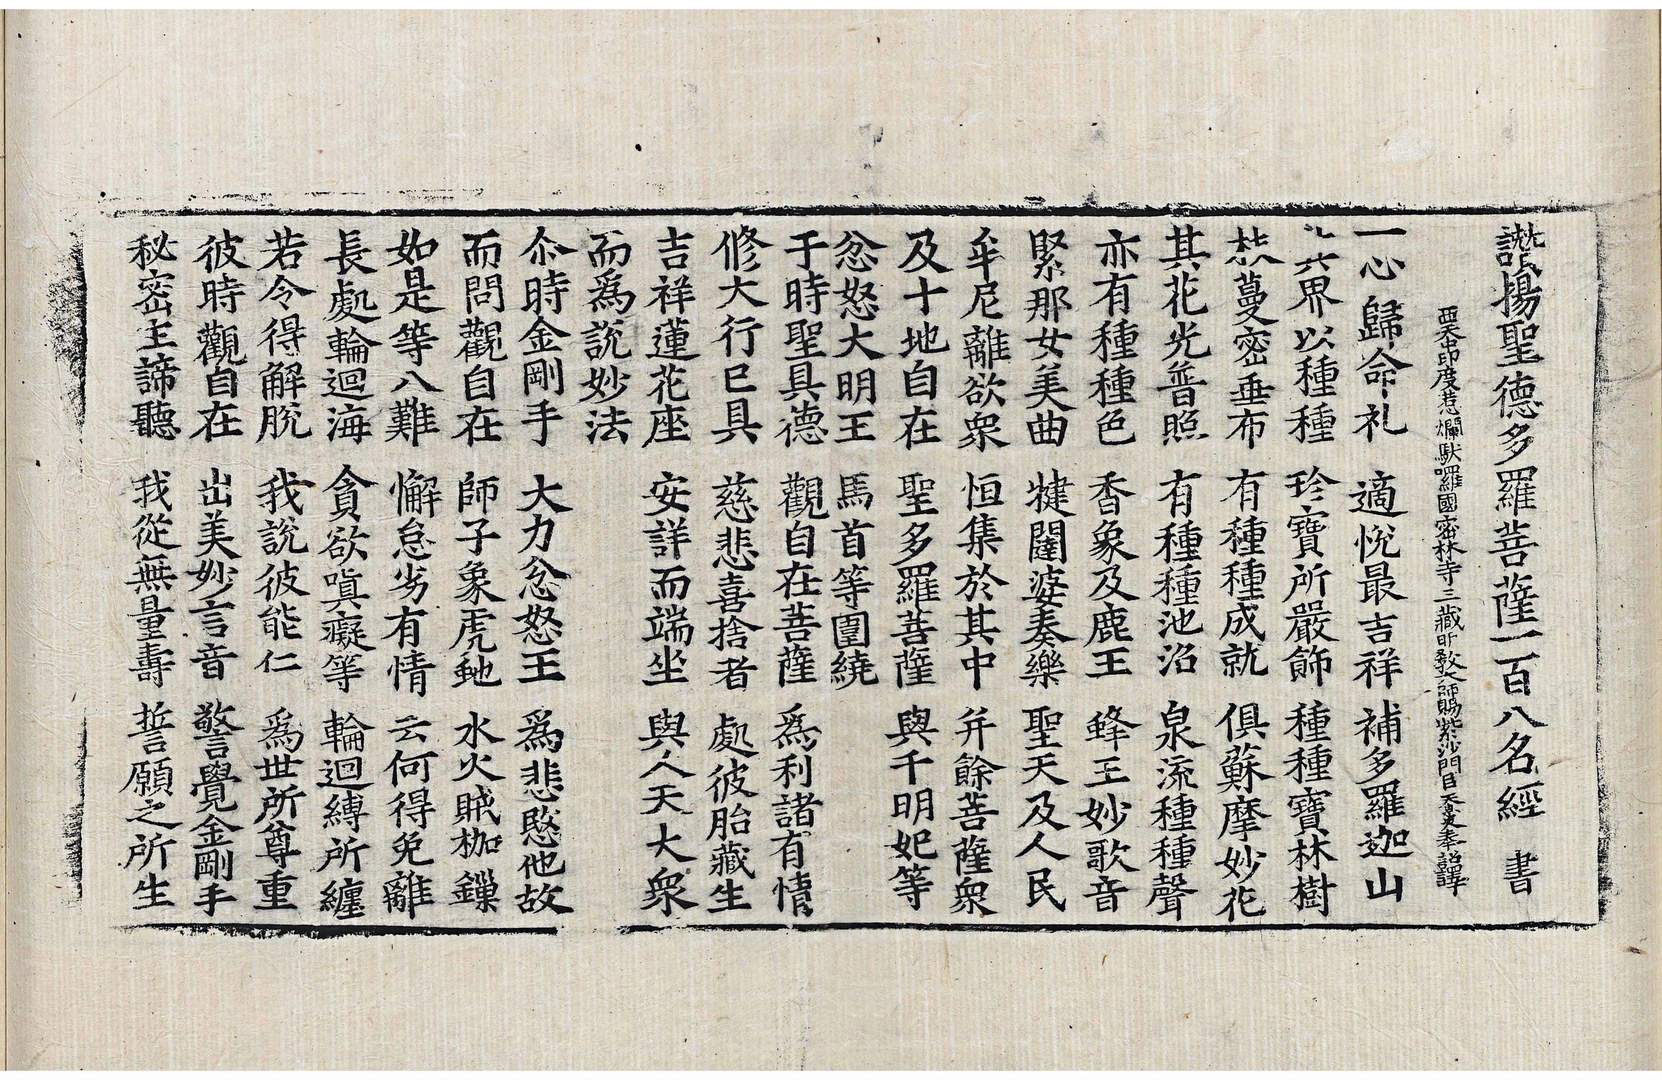 讚揚聖德多羅菩薩一百八名經 書
西天中印度惹爛馱囉國密林寺三藏明教大師賜紫沙門臣天息災奉 詔譯
一心歸命礼 適悅最吉祥 補多羅迦山
界以種種 珍寶所嚴飾 種種寶林樹
蔓密垂布 有種種成就 俱蘇摩妙花
其花光普照 有種種池沼 泉流種種聲
亦有種種色 香象及鹿王 蜂王妙歌音
緊那女美曲 犍闥婆奏樂 聖天及人民
牟尼離欲衆 恒集於其中 并餘菩薩衆
及十地自在 聖多羅菩薩 與千明妃等
忿怒大明王 馬首等圍繞
于時聖具德 觀自在菩薩 爲利諸有情
修大行已具 慈悲喜捨者 處彼胎藏生
吉祥蓮花座 安詳而端坐 與人天大衆
而爲說妙法
尒時金剛手 大力忿怒王 爲悲愍他故
而問觀自在 師子象虎虵 水火賊枷鏁
如是等八難 懈怠劣有情 云何得免離
長處輪迴海 貪欲嗔癡等 輪迴縛所纏
若令得解脫 我說彼能仁 爲世所尊重
彼時觀自在 出美妙言音 警覺金剛手
秘密主諦聽 我從無量壽 誓願之所生